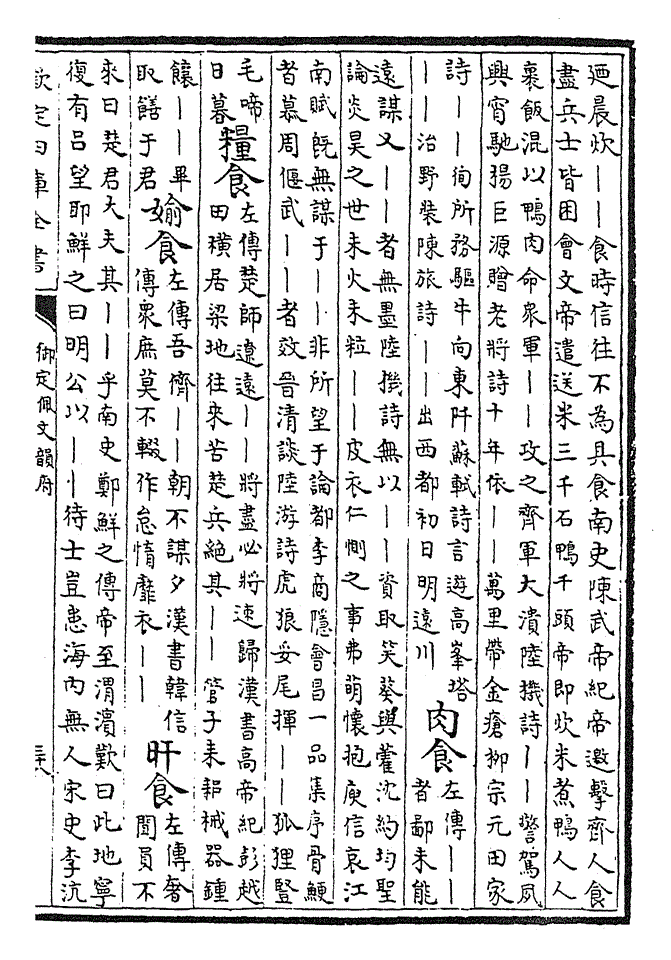 廼晨炊――食時信往不為具食南史陳武帝紀帝邀擊齊人食
盡兵士皆困會文帝遣送米三千石鴨千頭帝即炊米煮鴨人人
裹飯混以鴨肉命衆軍――攻之齊軍大潰陸機詩――警駕夙
興宵馳揚巨源贈老將詩十年依――萬里帶金瘡柳宗元田家
詩――徇所務驅牛向東阡蘇軾詩言遊高峯塔
――治野裝陳旅詩――出西都初日明遠川
肉食
左傳――
者鄙未能
遠謀又――者無墨陸機詩無以――資取笑葵與藿沈約均聖
論炎昊之世未火未粒――皮衣仁惻之事弗萌懷抱庾信哀江
南賦既無謀于――非所望于論都李商隱會昌一品集序骨鯁
者慕周偃武――者效晉清談陸游詩虎狼妥尾揮――狐狸豎
毛啼
日暮
糧食
左傳楚師遼遠――將盡必將速歸漢書高帝紀彭越
田橫居梁地往來苦楚兵絕其――管子耒耜械器鍾
饟――畢
取饍于君
媮食
左傳吾儕――朝不謀夕漢書韓信
傳衆庶莫不輟作怠惰靡衣――
旰食
左傳奢
聞員不
來曰楚君大夫其――乎南史鄭鮮之傳帝至渭濱歎曰此地寧
復有呂望耶鮮之曰明公以――待士豈患海內無人宋史李沆
欽定四庫全書
御定佩文韻府